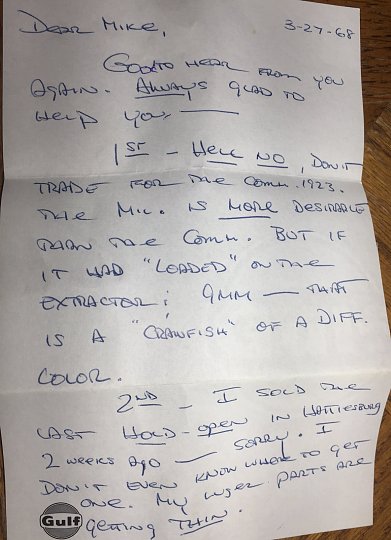 Dear Mike,
3-27-68
Good to hear from you
again. Always glad to
help you. —
1st - Hell No, Don't
trade for the Comm. 1923.
The Mil. is more desirable
than the Comm. But if
it had "loaded" on the
extractor; 9mm — that
is a "crawfish" of a diff.
color.
2nd - I sold the
last hold-open in Hattiesburg
2 weeks ago — sorry. I
don't even know where to get
one. My Luger parts are
getting thin.
Gulf